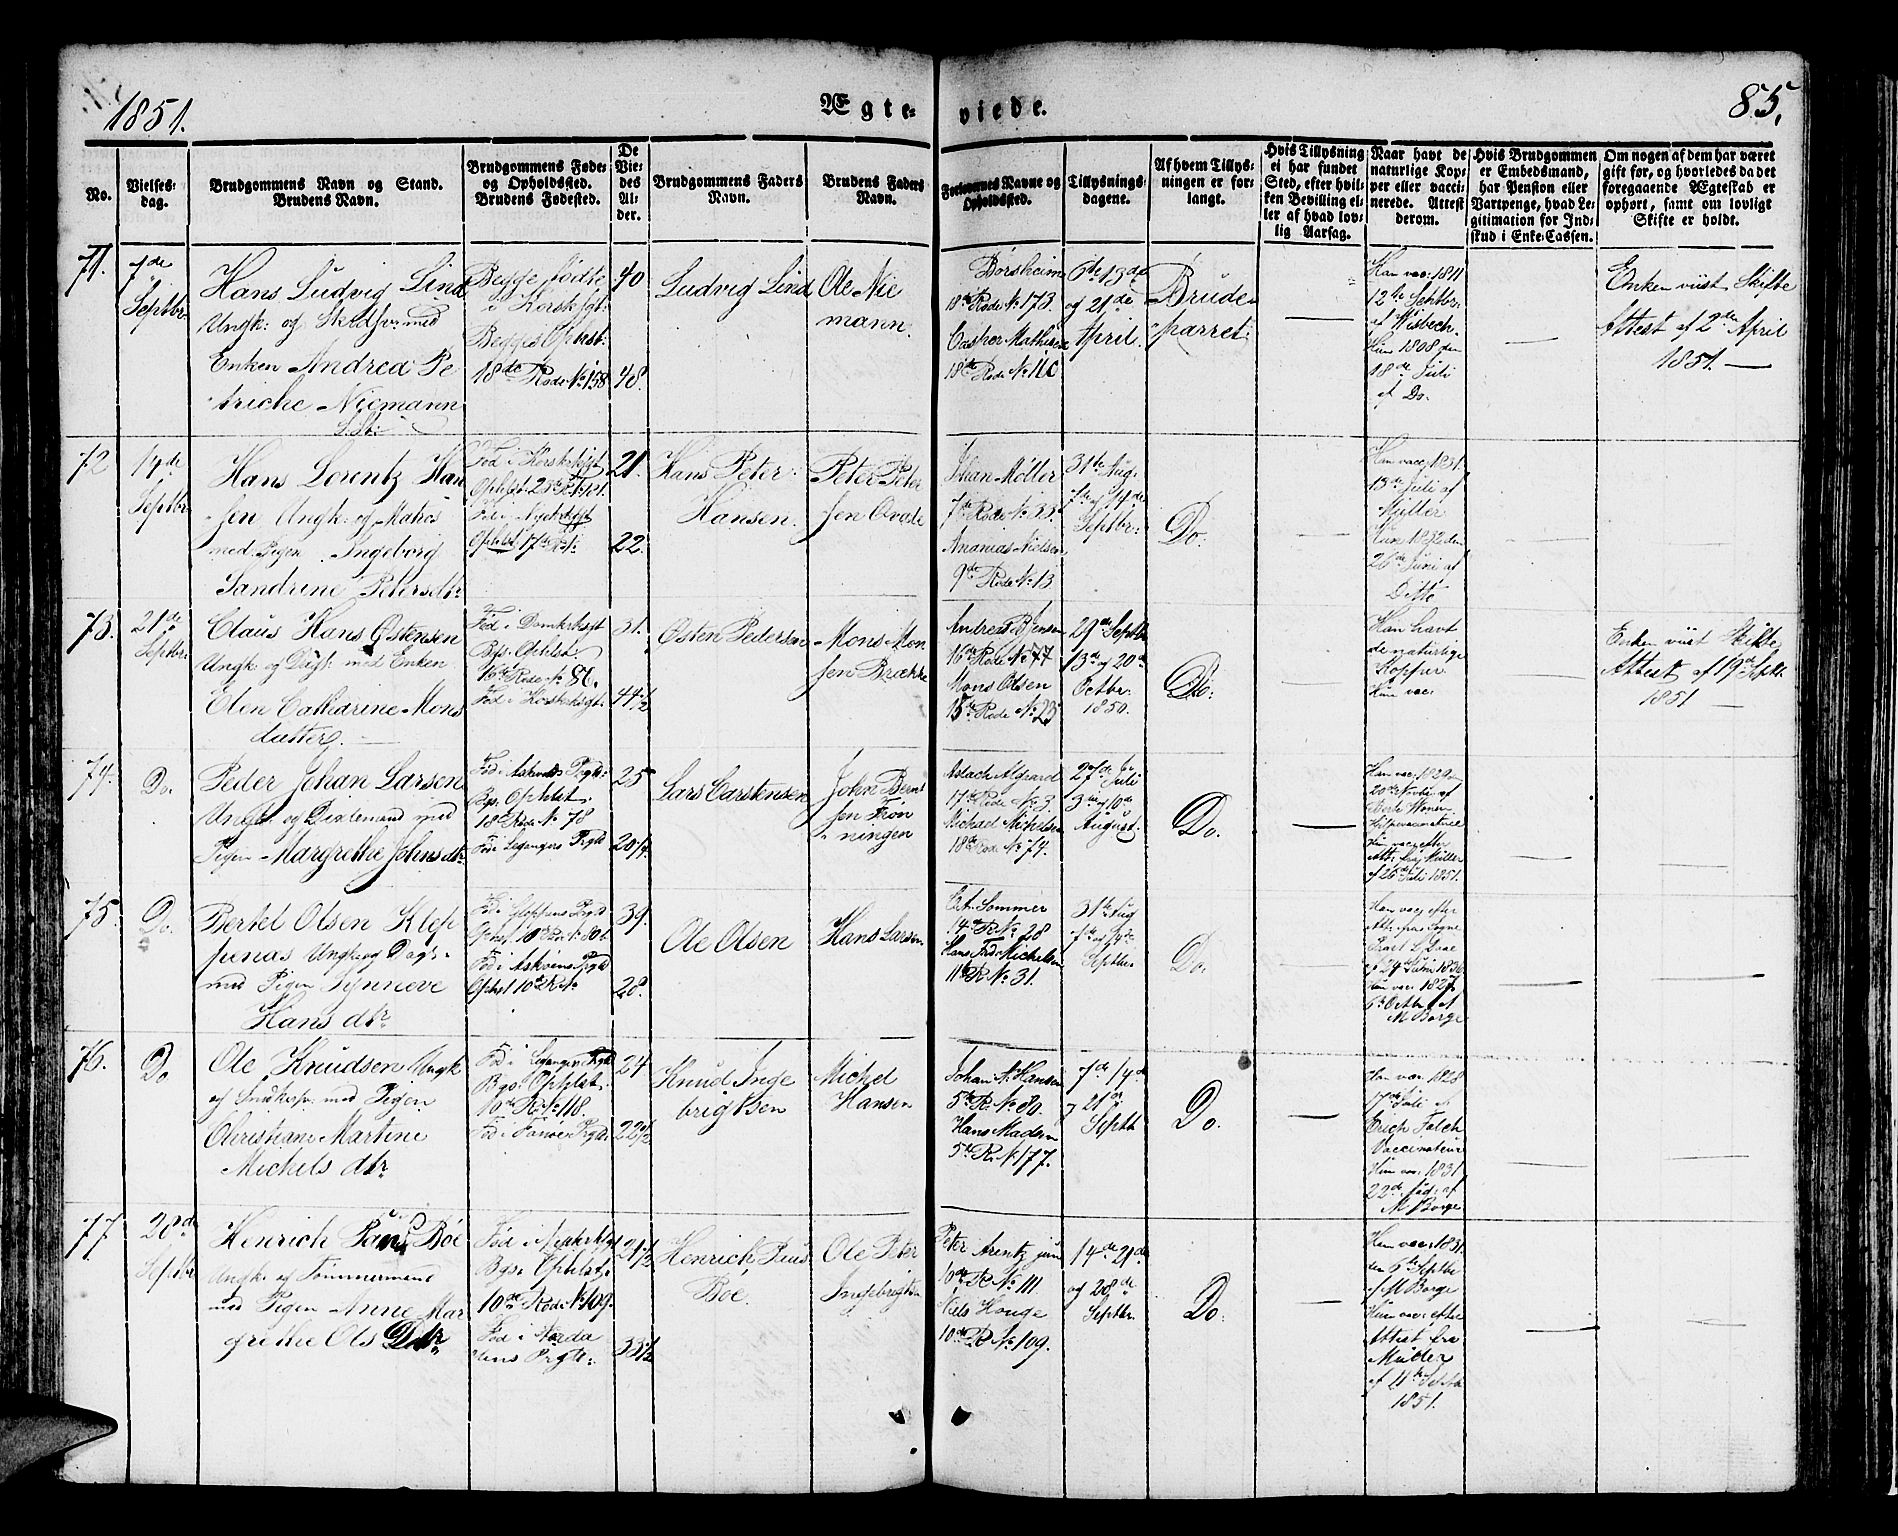 1851.
Ægte-
viede.
85.
No.
Vielses-
dag.
Brudgommens Navn og Stand.
Brudens Navn.
Brudgommens Føde-
og Opholdssted.
Brudens Fødested.
De
Vie-
des
Al-
der.
Brudgommens Faders
Navn.
Brudens Faders
Navn.
Forlovernes Navne og
Opholdssted.
Tillysnings-
dagene.
Af hvem Tillys-
ningen er for-
langt.
Hvis Tillysning
ei har fundet
Sted, efter hvil-
ken Bevilling el-
ler af hvad lov-
lig Aarsag.
Naar havt de
naturlige Kop-
per eller vacci-
nerede. Attest
derom.
Hvis Brudgommen
er Embedsmand,
har Pension eller
Vartpenge, hvad Le-
gitimation for Ind-
skud i Enke-Cassen.
Om nogen af dem har været
gift før, og hvorledes da det
foregaaende Ægteskab er
ophørt, samt om lovligt
Skifte er holdt.
71.
7de
Septbr
Hans Ludvig Lind
Ungk: og
med
Enken Andrea Pe
triche Niemann
Begge fødte
i Korskkgt:
Begges Ophst:
18de Rode No 158
40
48.
Ludvig Lind
Ole Nie
mann
Borsheim
18de Rode No 173
Casper Mathisen
18de Rode No 110
6te 13de
og 21de
April
Brude
parret
Han vac: 1811
12te Septbr
af Wisbech
Hun 1808 den
18de Juli
af Do.
Enken viist Skifte
Attest af 2de April
1851. —
72
14de
Septbr
Hans Lorentz Han
sen Ungk: og Matros
med Pigen Ingeborg
Sandrine Petersdtr
Fød i Korskkgt
21.
22.
Hans Peter
Hansen.
Peter Peter
sen Ovale
Johan Møller
7de Rode No 33.
Ananias Nielsen
9de Rode No 13
31te Aug.
7de og 14de
Septbr:
Do.
Han vac: 1831.
13de Juli af
Müller
Hun 1832 den
28de Juni af
Ditto
73.
21de
Septbr
Claus Hans Østensen
Ungk: og Dagk: med Enken
Elen Catharine Mons
datter. —
Fød i Domkkgt
Bgs Ophst.
16de Rode No 86.
Fød i Korskkgt.
31.
44 1/2
Østen Pedersen
Mons Mon
sen Brække
Andreas B Jensen
16de Rode No 77
Mons Olsen
15de Rode No 23
29de Septbr
13de og 20de
Octbr:
1850.
Do:
Han havt
de naturlige
Kopper
Hun vac:
Enken viist Skifte
Attest af 19de Septbr.
1851 —
74.
Do.
Peder Johan Larsen
Ungk: og
med
Pigen Margrethe Johnsdtr
Fød i Askvolds Prgte:
Bgs: Ophst.
18de Rode No 78
Fød Leganger Prgte
25
20 1/4
Lars Carstensen
John Bernt
sen Frøn
ningen
Aslach Algaard
17de Rode No 3.
Michael Michelsen
18de Rode No 74.
27de Juli
3die og 10de
August.
Do.
Han vac: 1829
20de Juli af
Hun vac efter
Att: fra Müller
af 26de Juli 1851.
75.
Do.
Bertel Olsen Klep
penas Ungk: og Dagk:
med Pigen Synneve
Hans dtr
Fød i Gloppens Prgte
Ophst 10de Rode No 80
Fød i Askvolds Prgte
Ophst 10de R No
39.
28.
Ole Olsen
Hans Larsen
Sommer
14de R No 28
Hans Fr Michelsen
11te R No 31.
31te Aug
7de og 14de
Septbr.
Do.
Han vac: efter
Att: fra Sogne
Præst Daae
af 24de Juni 1836
Hun vac: 1827
6te Octbr af
M Borge
76.
Do
Ole Knudsen Ungk
og Snedkersv: med Pigen
Christiane Martine
Michels dtr
Fød i Leganger Prgte
Bgs: Ophst.
10de R. No 118.
Fød i Fanøe Prgte
24
22 1/2
Knud Inge
brigtsen
Michel
Hansen
Johan N. Hansen
5te R. No 80.
Hans Madsen
5te R. No 177.
7de 14de
og 21de
Septb
Do.
Han vac: 1828
17de Juli af
Erich Falch
Vaccinateur
Hun vac: 1831
22de
af
M Borge
77
28de
Septbr
Henrich Paus Böe
Ungk: og Tømmermand
med Pigen Anne Mar
grethe Ols Dtr
Fød i Nykkgt
Bgs: Ophst:
10de Rode No 109.
Fød i Norda
lens Prgte:
21 1/2
33 1/2
Henrich Paus
Böe
Ole Peter
Ingebrigtsen
Peter Arentz jun
10de R No 111.
Niels Houge
10de R No 109.
14de 21de
og 28de
Septbr.
Do.
Han vac: 1831
den 6te Septbr
af M Borge
Hun vac: efter
Attest fra
Müller
af 11te Septbr
1851.